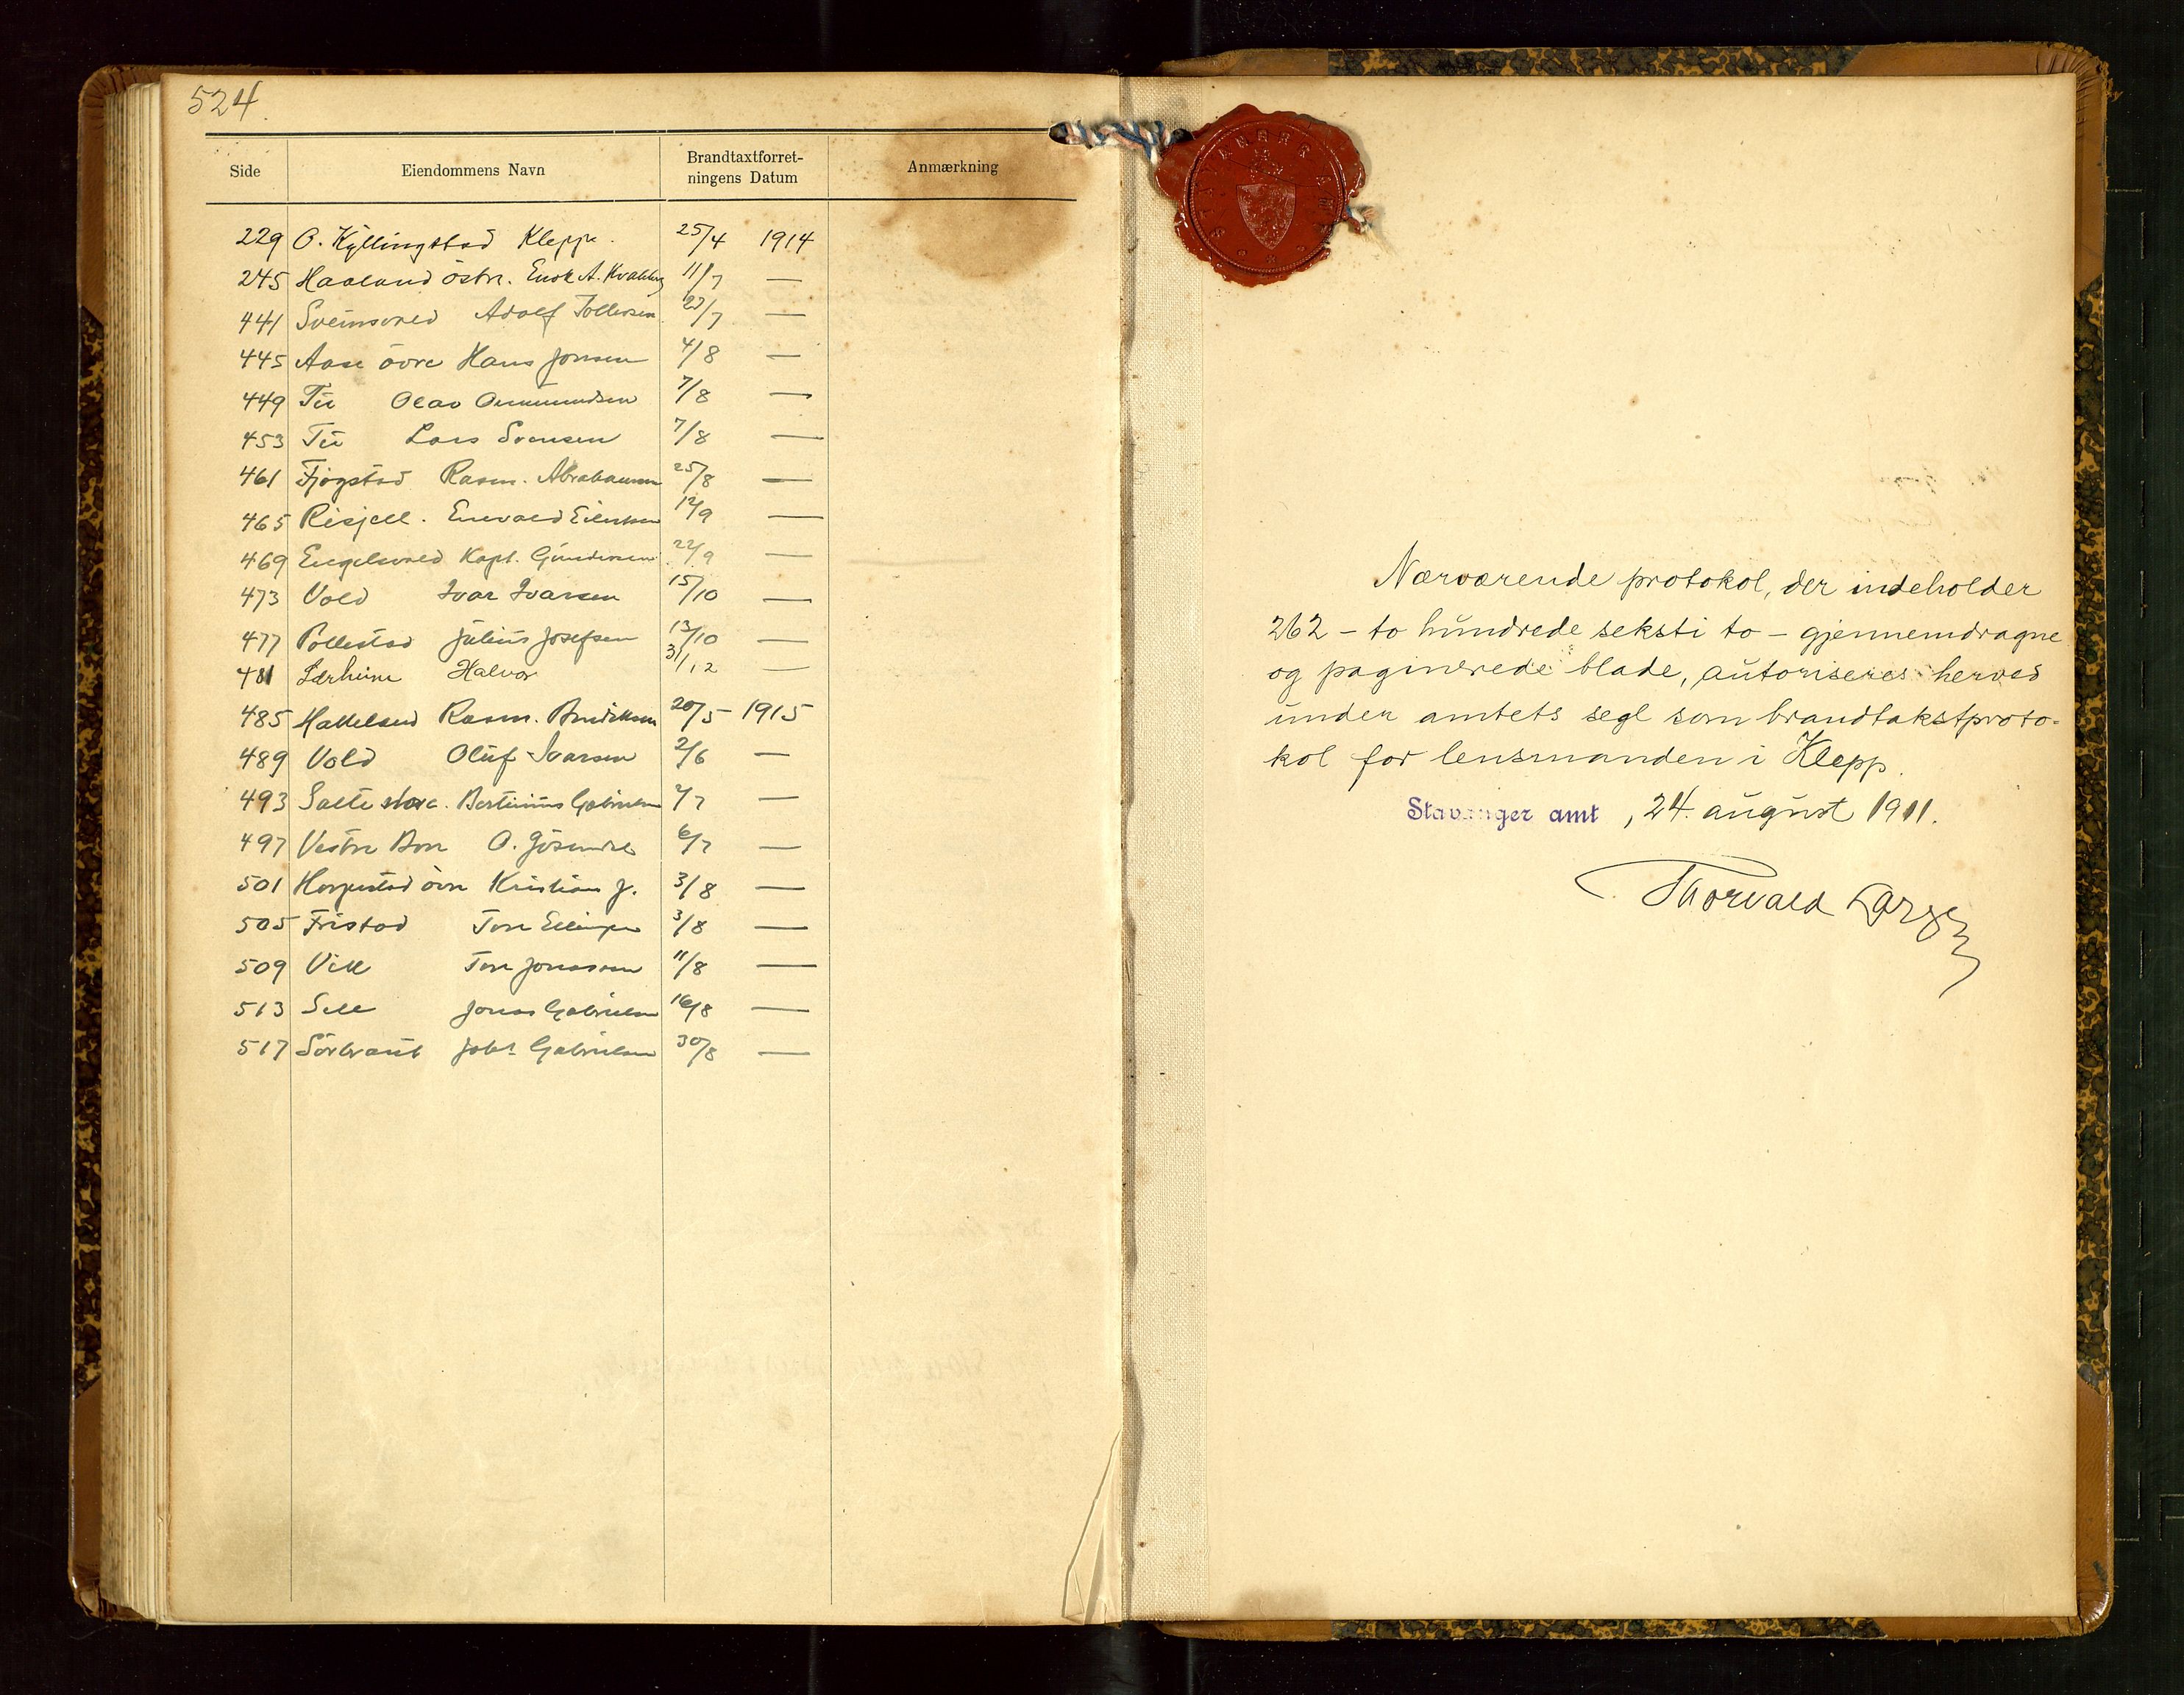 524.
Side Eiendommens Navn Brandtaxtforret-
ningens Datum Anmærkning
229 O. Kÿllingstad Kleppe. 25/4 1914
245 Haaland östre. Enok A. 11/7 —
441 Sveinsvold Adolf Tollersen 27/7 —
445 Aase övre Hans Jonsen 4/8 —
449 Tu Olav 7/8 —
453 Tu Lars Svensen 7/8 —
461 Fjogstad Rasm. Abrahamsen 25/8 —
465 Risjell. Enevald 12/9 —
469 Engelsvold Kapt. Gundersen 22/9 —
473 Vold Ivar Ivarsen 15/10 —
477 Pollestad Julius Josefsen 13/10 —
481 Lærheim Halvor 31/12 —
485 Rasm. 20/5 - 1915
489 Vold Oluf Ivarsen 2/6 —
493 Salte store. Bertinius Gabrielsen 2/7 —
497 Vestre Bore O. 6/7 —
501 övre Kristian J. 3/8 —
505 Fristad Tore 3/8 —
509 Vik Tore Jonassen 11/8 —
513 Sele Jonas Gabrielsen 16/8 —
517 Sörbraut Gabrielsen 30/8 —
STAVANGER AMT
Nærværende protokol, der indeholder
262 – to hundrede seksti to – gjennemdragne
og paginerede blade, autoriseres herved
under amtets segl som brandtakstproto-
kol for lensmanden i Klepp.
Stavanger amt, 24. august 1911.
Thorvald Larsen